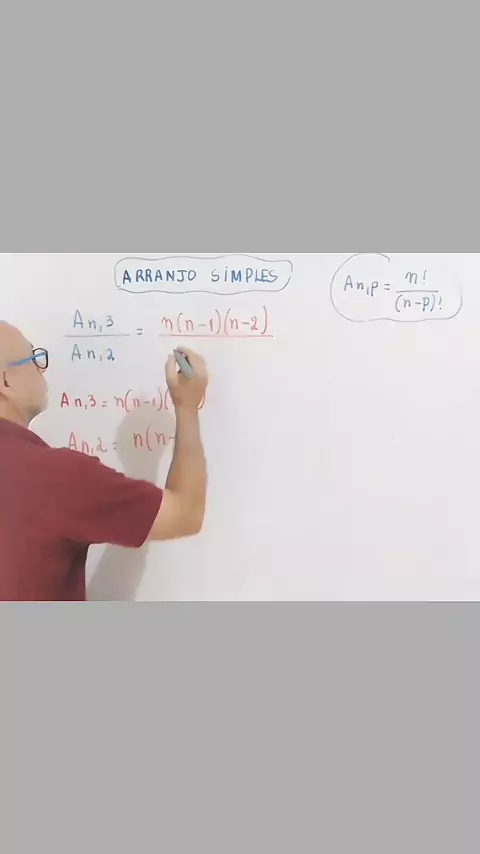 ARRANJO SIMPLES
An,p = n!/(n-p)!
An,3/An,2 = n(n-1)(n-2)
An,3 = n(n-1)(
An,2 = n(n-